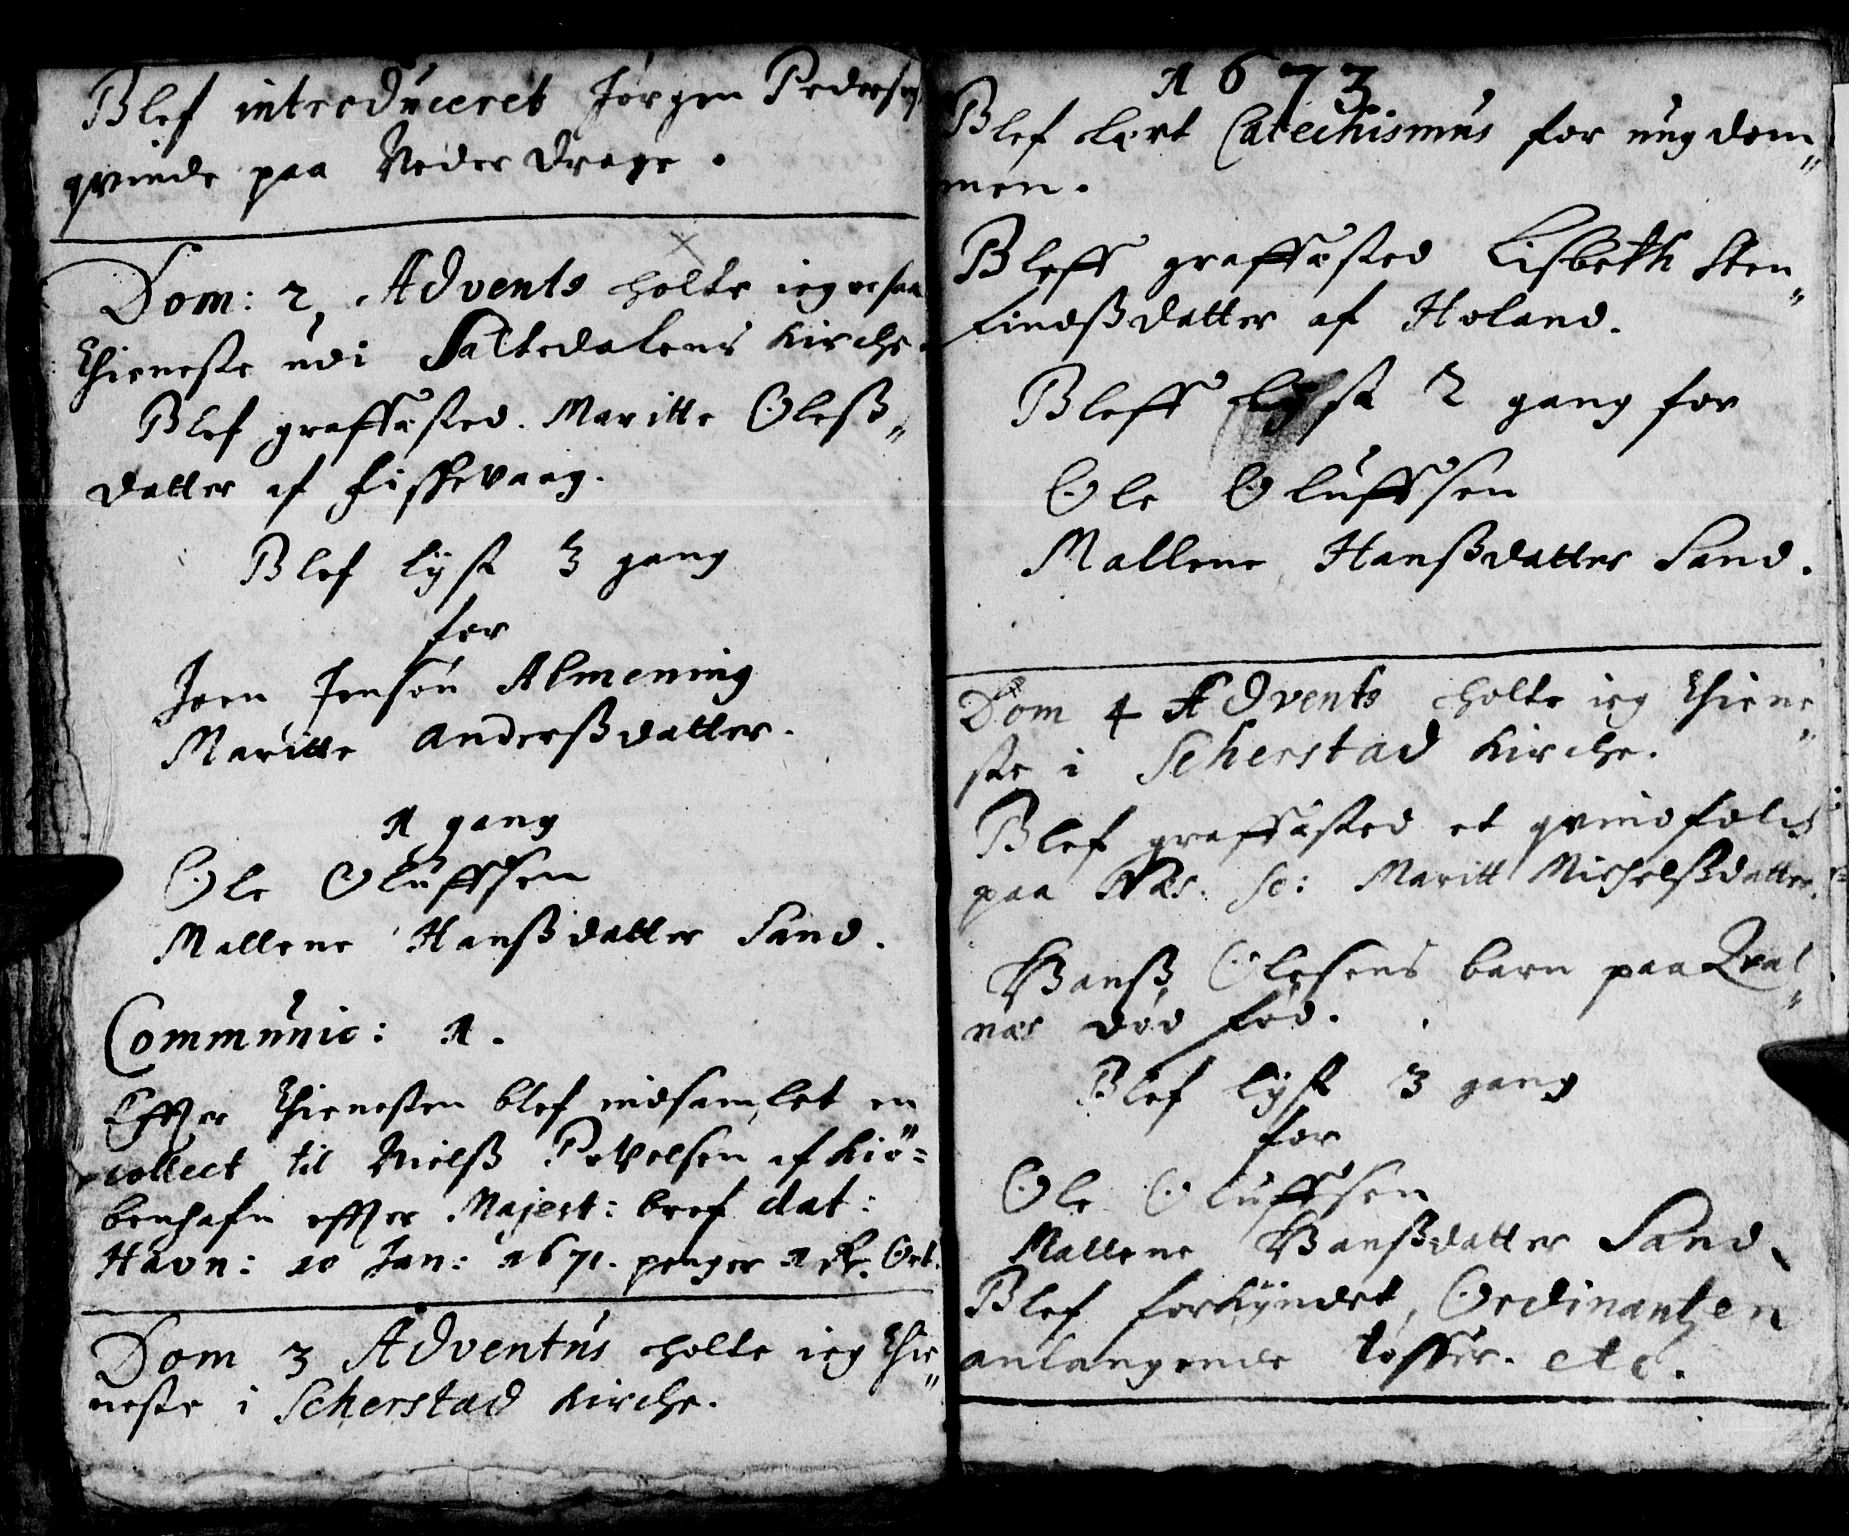 Blef introduceret Jørgen Pedersøn
qvinde paa Neder Drage.
Dom: 2, Advents holte ieg ocsaa
thieneste udi Saltedalens Kirche.
Blef graffæsted. Maritte Oleß„
datter af Fiskevaag.
Blef lyst 3 gang
for
Joen Jensøn Almening
Maritte Anderßdatter.
1 gang
Ole Oluffsen
Mallene Hanßdatter Sand.
Communic: 1.
Effter thienesten blef indsamlet en
collect til Nielß Povelsen af Kiø=
benhafn effter Majest: bref dat:
Havn: 10 Jan: 1671. penger 1 Ort.
Dom 3 Adventus holte ieg thie„
neste i Scherstad Kirche.
1673
Blef lært Catechismus for ungdom„
men.
Bleff graffæsted Lisbeth Sten„
Lindßdatter af Holand.
Bleff lyst 2 gang for
Ole Oluffsen
Mallene Hanßdatter Sand.
Dom 4 Advents holte ieg thiene„
ste i Scherstad Kirche.
Blef graffæsted et qvindfolch
paa Næs. sc: Maritt Michelßdatter.
Hanß Olesens barn paa Qval„
næs død fød.
Blef lyst 3 gang
for
Ole Oluffsen
Mallene Hanßdatter Sand.
Blef forkyndet, Ordinantzen
anlangende tösser. etc.